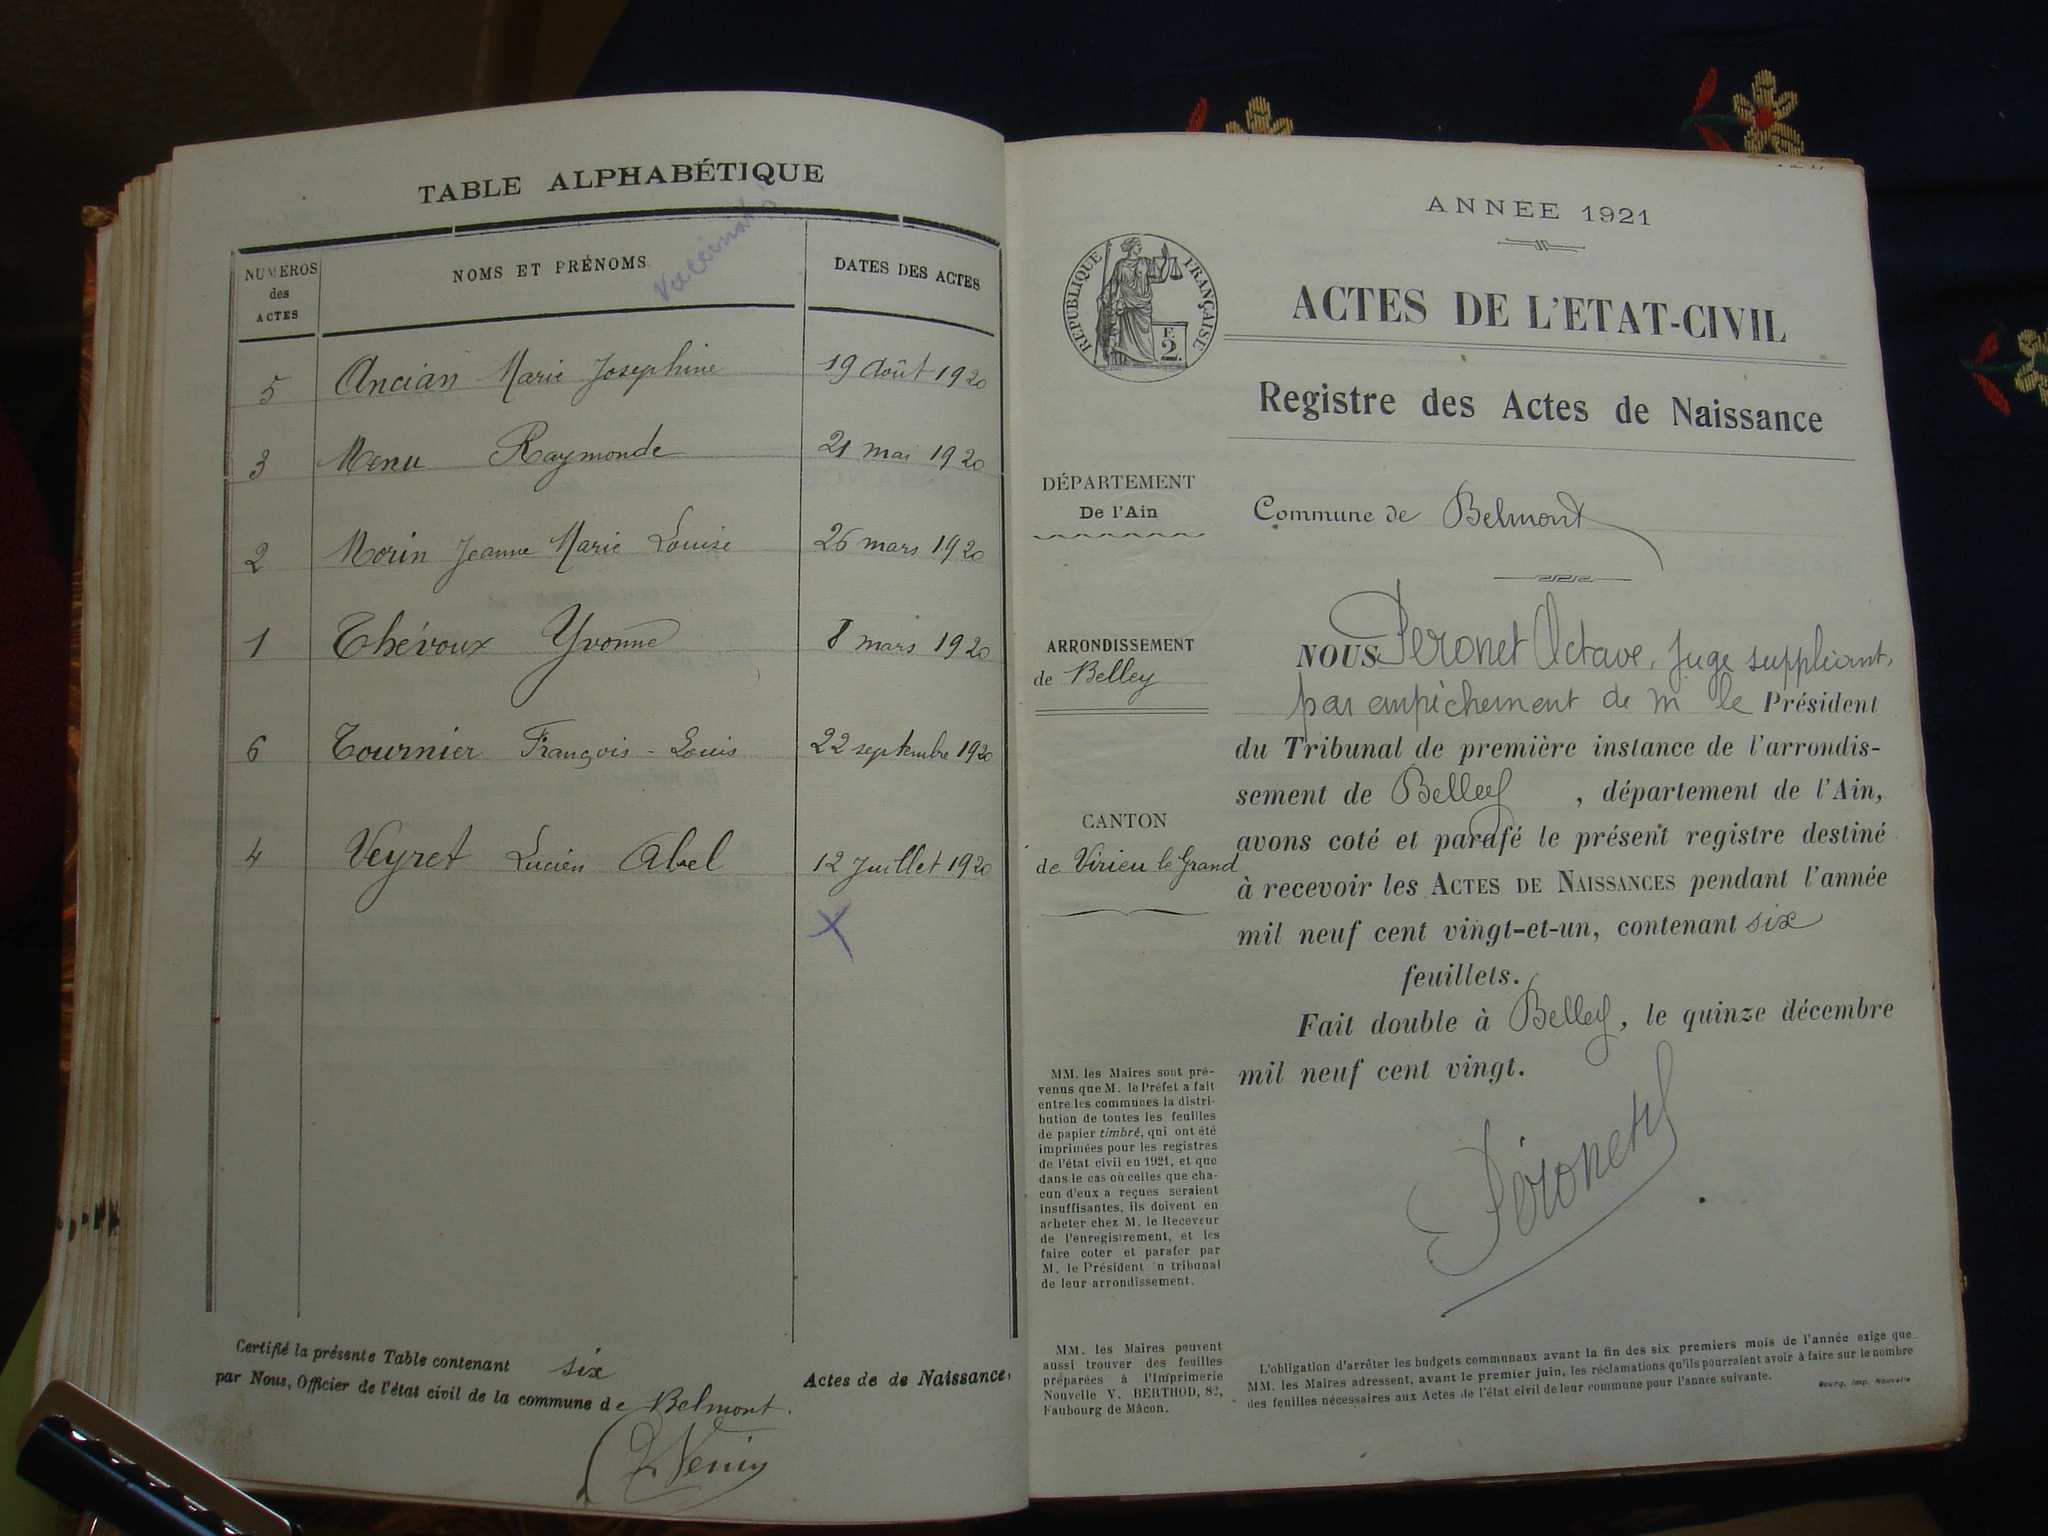 TABLE ALPHABÉTIQUE
NUMEROS
des
ACTES
NOMS ET PRÉNOMS
DATES DES ACTES
5 Ancian Marie Josephine 19 Août 1920
3 Menu Raymonde 21 mai 1920
2 Morin Jeanne Marie Louise 26 mars 1920
1 Thévoux Yvonne 8 mars 1920
6 Tournier François-Louis 22 septembre 1920
4 Veyret Lucien Abel 12 Juillet 1920
Certifié la présente Table contenant six Actes de de Naissance,
par Nous, Officier de l'état civil de la commune de Belmont.
ANNÉE 1921
RÉPUBLIQUE FRANÇAISE
F.
2.
ACTES DE L'ETAT-CIVIL
Registre des Actes de Naissance
DÉPARTEMENT
De l'Ain
Commune de Belmont
ARRONDISSEMENT
de Belley
CANTON
de Virieu le Grand
NOUS Peronet Octave, Juge suppléant,
par empêchement de M le Président
du Tribunal de première instance de l'arrondis-
sement de Belley , département de l'Ain,
avons coté et parafé le présent registre destiné
à recevoir les ACTES DE NAISSANCES pendant l'année
mil neuf cent vingt-et-un, contenant six
feuillets.
Fait double à Belley, le quinze décembre
mil neuf cent vingt.
Péronet
MM. les Maires sont pré-
venus que M. le Préfet a fait
entre les communes la distri-
bution de toutes les feuilles
de papier timbré, qui ont été
imprimées pour les registres
de l'état civil en 1921, et que
dans le cas où celles que cha-
cun d'eux a reçues seraient
insuffisantes, ils doivent en
acheter chez M. le Receveur
de l'enregistrement, et les
faire coter et parafer par
M. le Président 'n tribunal
de leur arrondissement.
MM. les Maires peuvent
aussi trouver des feuilles
préparées à l'Imprimerie
Nouvelle V. BERTHOD, 82,
Faubourg de Mâcon.
L'obligation d'arrêter les budgets communaux avant la fin des six premiers mois de l'année exige que
MM. les Maires adressent, avant le premier juin, les réclamations qu'ils pourraient avoir à faire sur le nombre
des feuilles nécessaires aux Actes de l'état civil de leur commune pour l'année suivante.
Bourg, Imp. Nouvelle